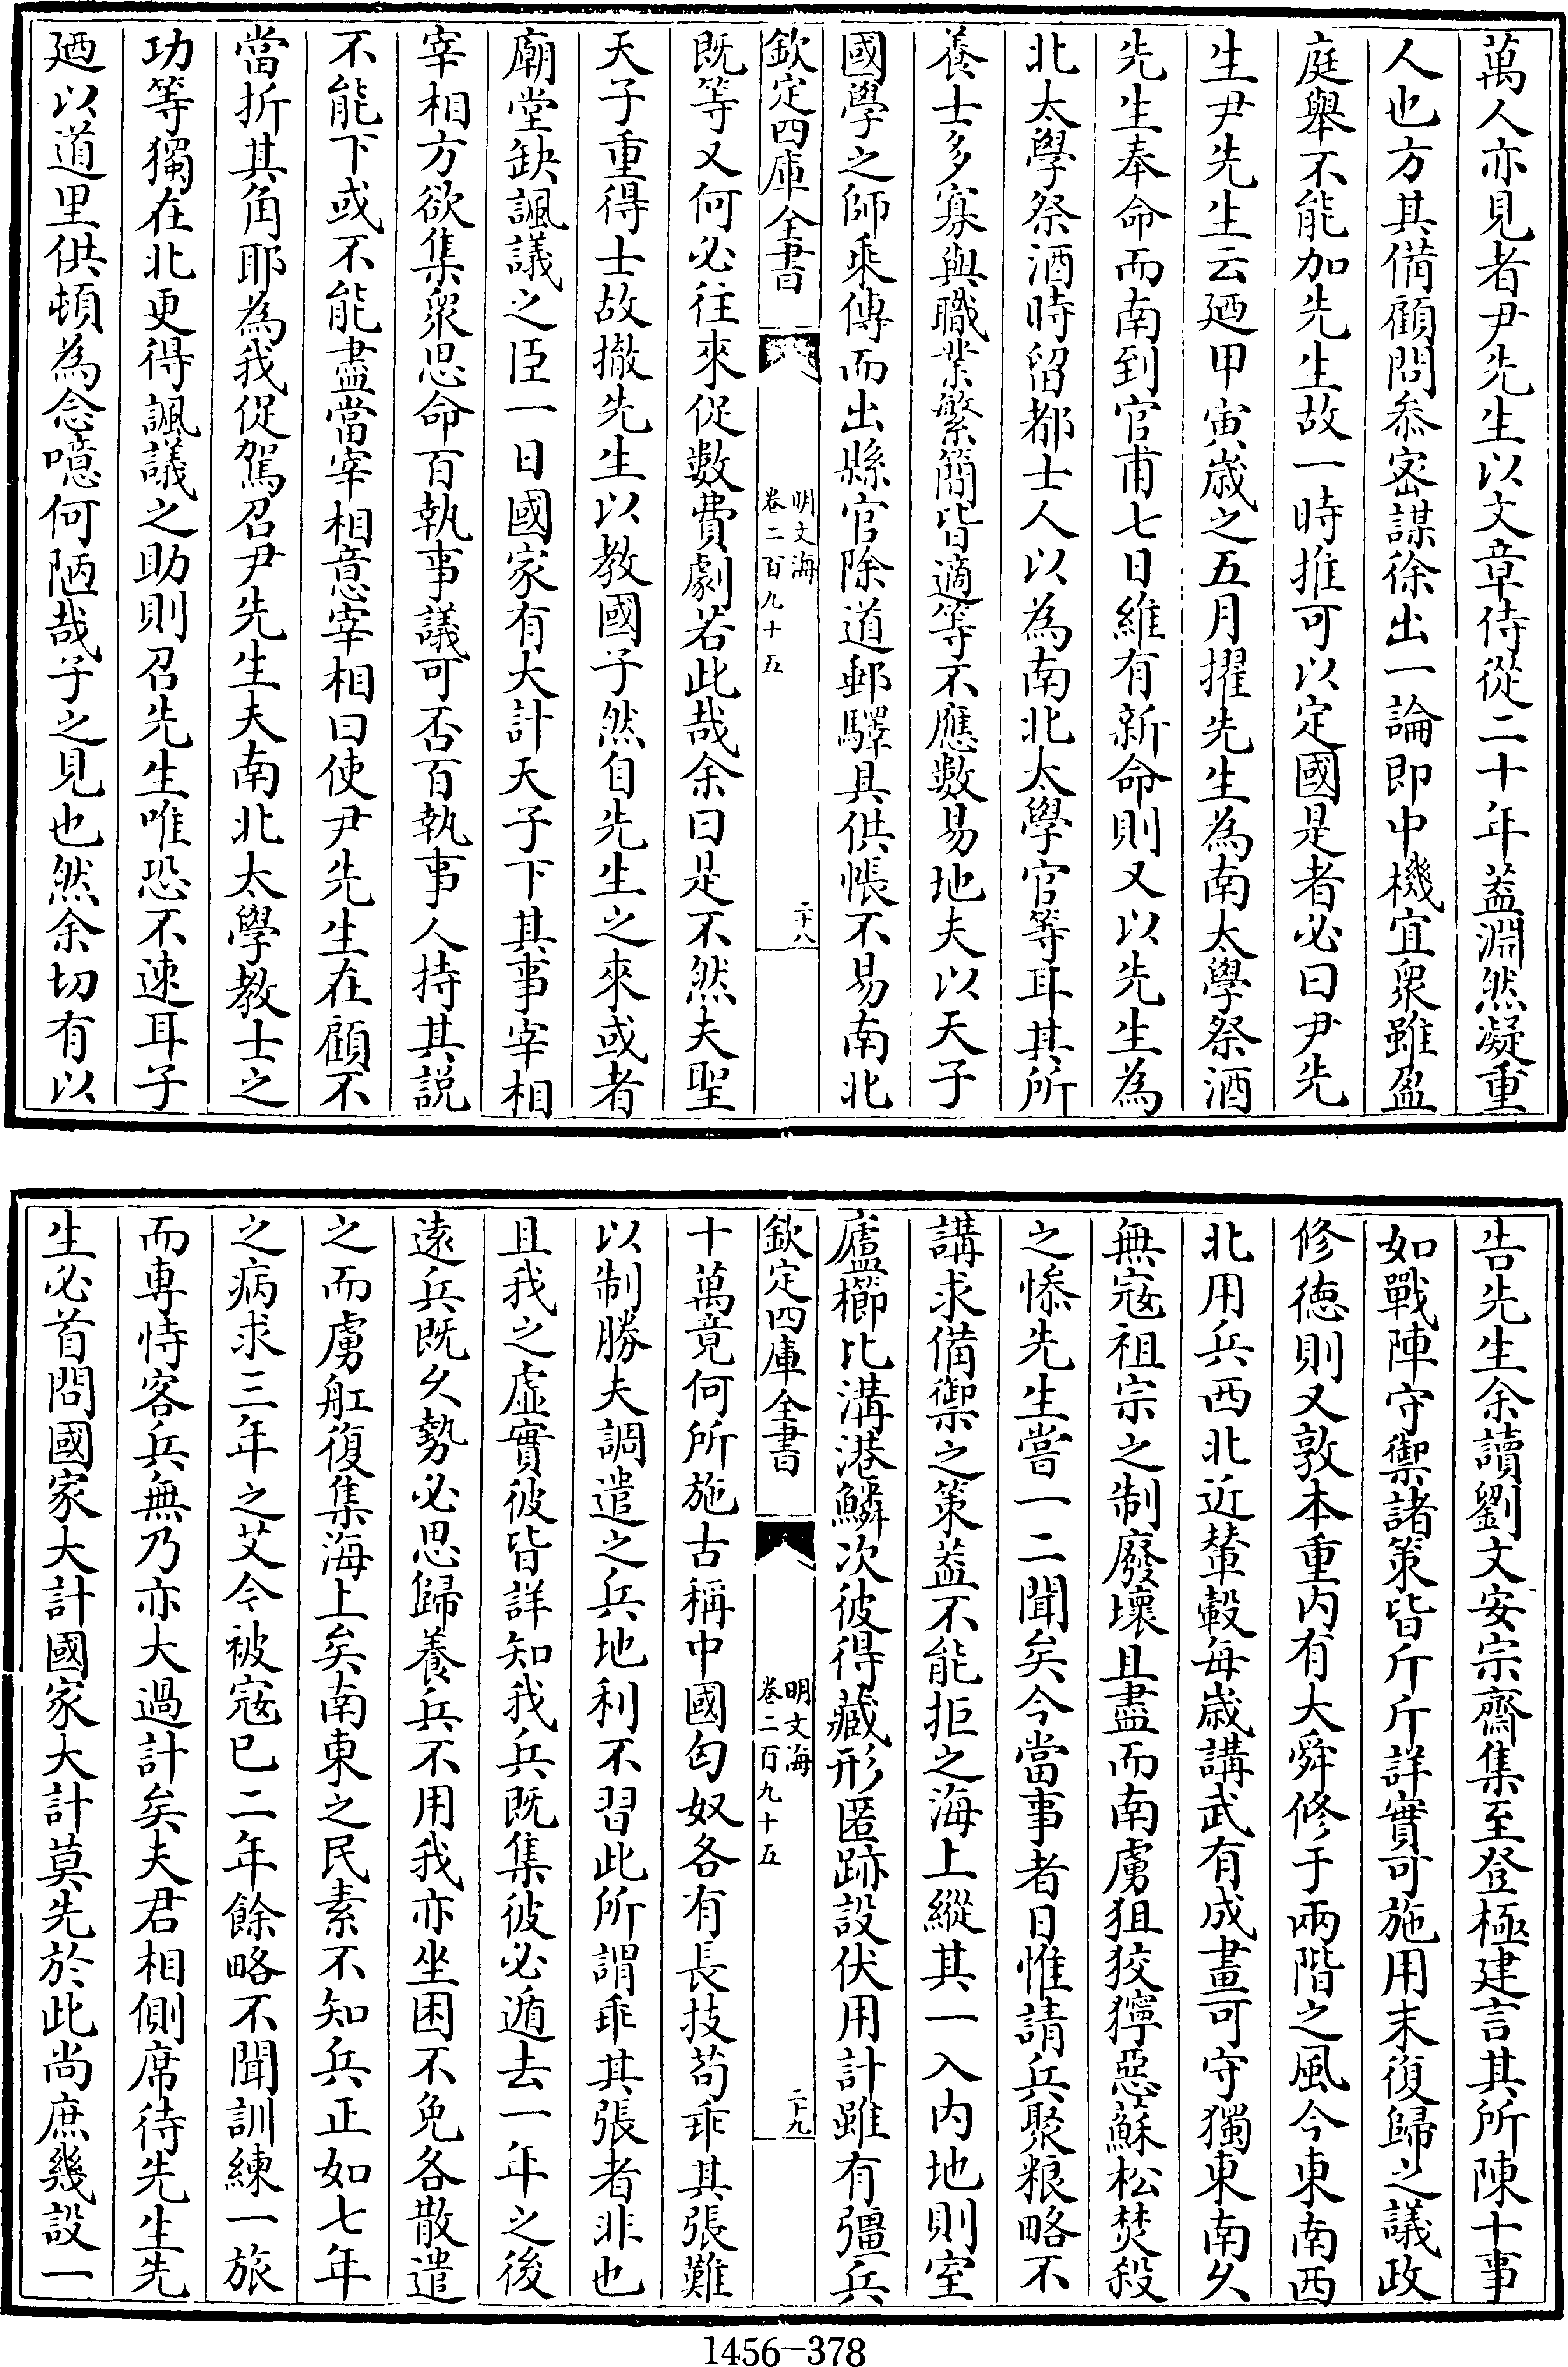 萬人亦見者尹先生以文章侍從二十年葢淵然凝重
人也方其備顧問叅密謀徐出一論即中機宜衆雖盈
庭舉不能加先生故一時推可以定國是者必曰尹先
生尹先生云廼甲寅歳之五月擢先生為南太學祭酒
先生奉命而南到官甫七日維有新命則又以先生為
北太學祭酒時留都士人以為南北太學官等耳其所
養士多寡與職業繁簡皆適等不應數易地夫以天子
國學之師乘傳而出縣官除道郵驛具供帳不易南北
欽定四庫全書
明文海
卷二百九十五
二十八
既等又何必往來促數費劇若此哉余曰是不然夫聖
天子重得士故撤先生以教國子然自先生之來或者
廟堂缺諷議之臣一日國家有大計天子下其事宰相
宰相方欲集衆思命百執事議可否百執事人持其説
不能下或不能盡當宰相意宰相曰使尹先生在顧不
當折其角耶為我促駕召尹先生夫南北太學教士之
功等獨在北更得諷議之助則召先生唯恐不速耳子
廼以道里供頓為念噫何陋哉子之見也然余切有以
告先生余讀劉文安宗齋集至登極建言其所陳十事
如戰陣守禦諸策皆斤斤詳實可施用末復歸之議政
修徳則又敦本重内有大舜修于兩階之風今東南西
北用兵西北近輦轂每歳講武有成畫可守獨東南乆
無寇祖宗之制廢壞且盡而南虜狙狡獰惡蘇松焚殺
之慘先生嘗一二聞矣今當事者日惟請兵聚粮略不
講求備禦之策葢不能拒之海上縱其一入内地則室
廬櫛比溝港鱗次彼得藏形匿跡設伏用計雖有彊兵
欽定四庫全書
明文海
卷二百九十五
二十九
十萬竟何所施古稱中國匈奴各有長技苟乖其張難
以制勝夫調遣之兵地利不習此所謂乖其張者非也
且我之虛實彼皆詳知我兵既集彼必遁去一年之後
遠兵既乆勢必思歸養兵不用我亦坐困不免各散遣
之而虜舡復集海上矣南東之民素不知兵正如七年
之病求三年之艾今被寇已二年餘略不聞訓練一旅
而専恃客兵無乃亦大過計矣夫君相側席待先生先
生必首問國家大計國家大計莫先於此尚庶幾設一
1456-378